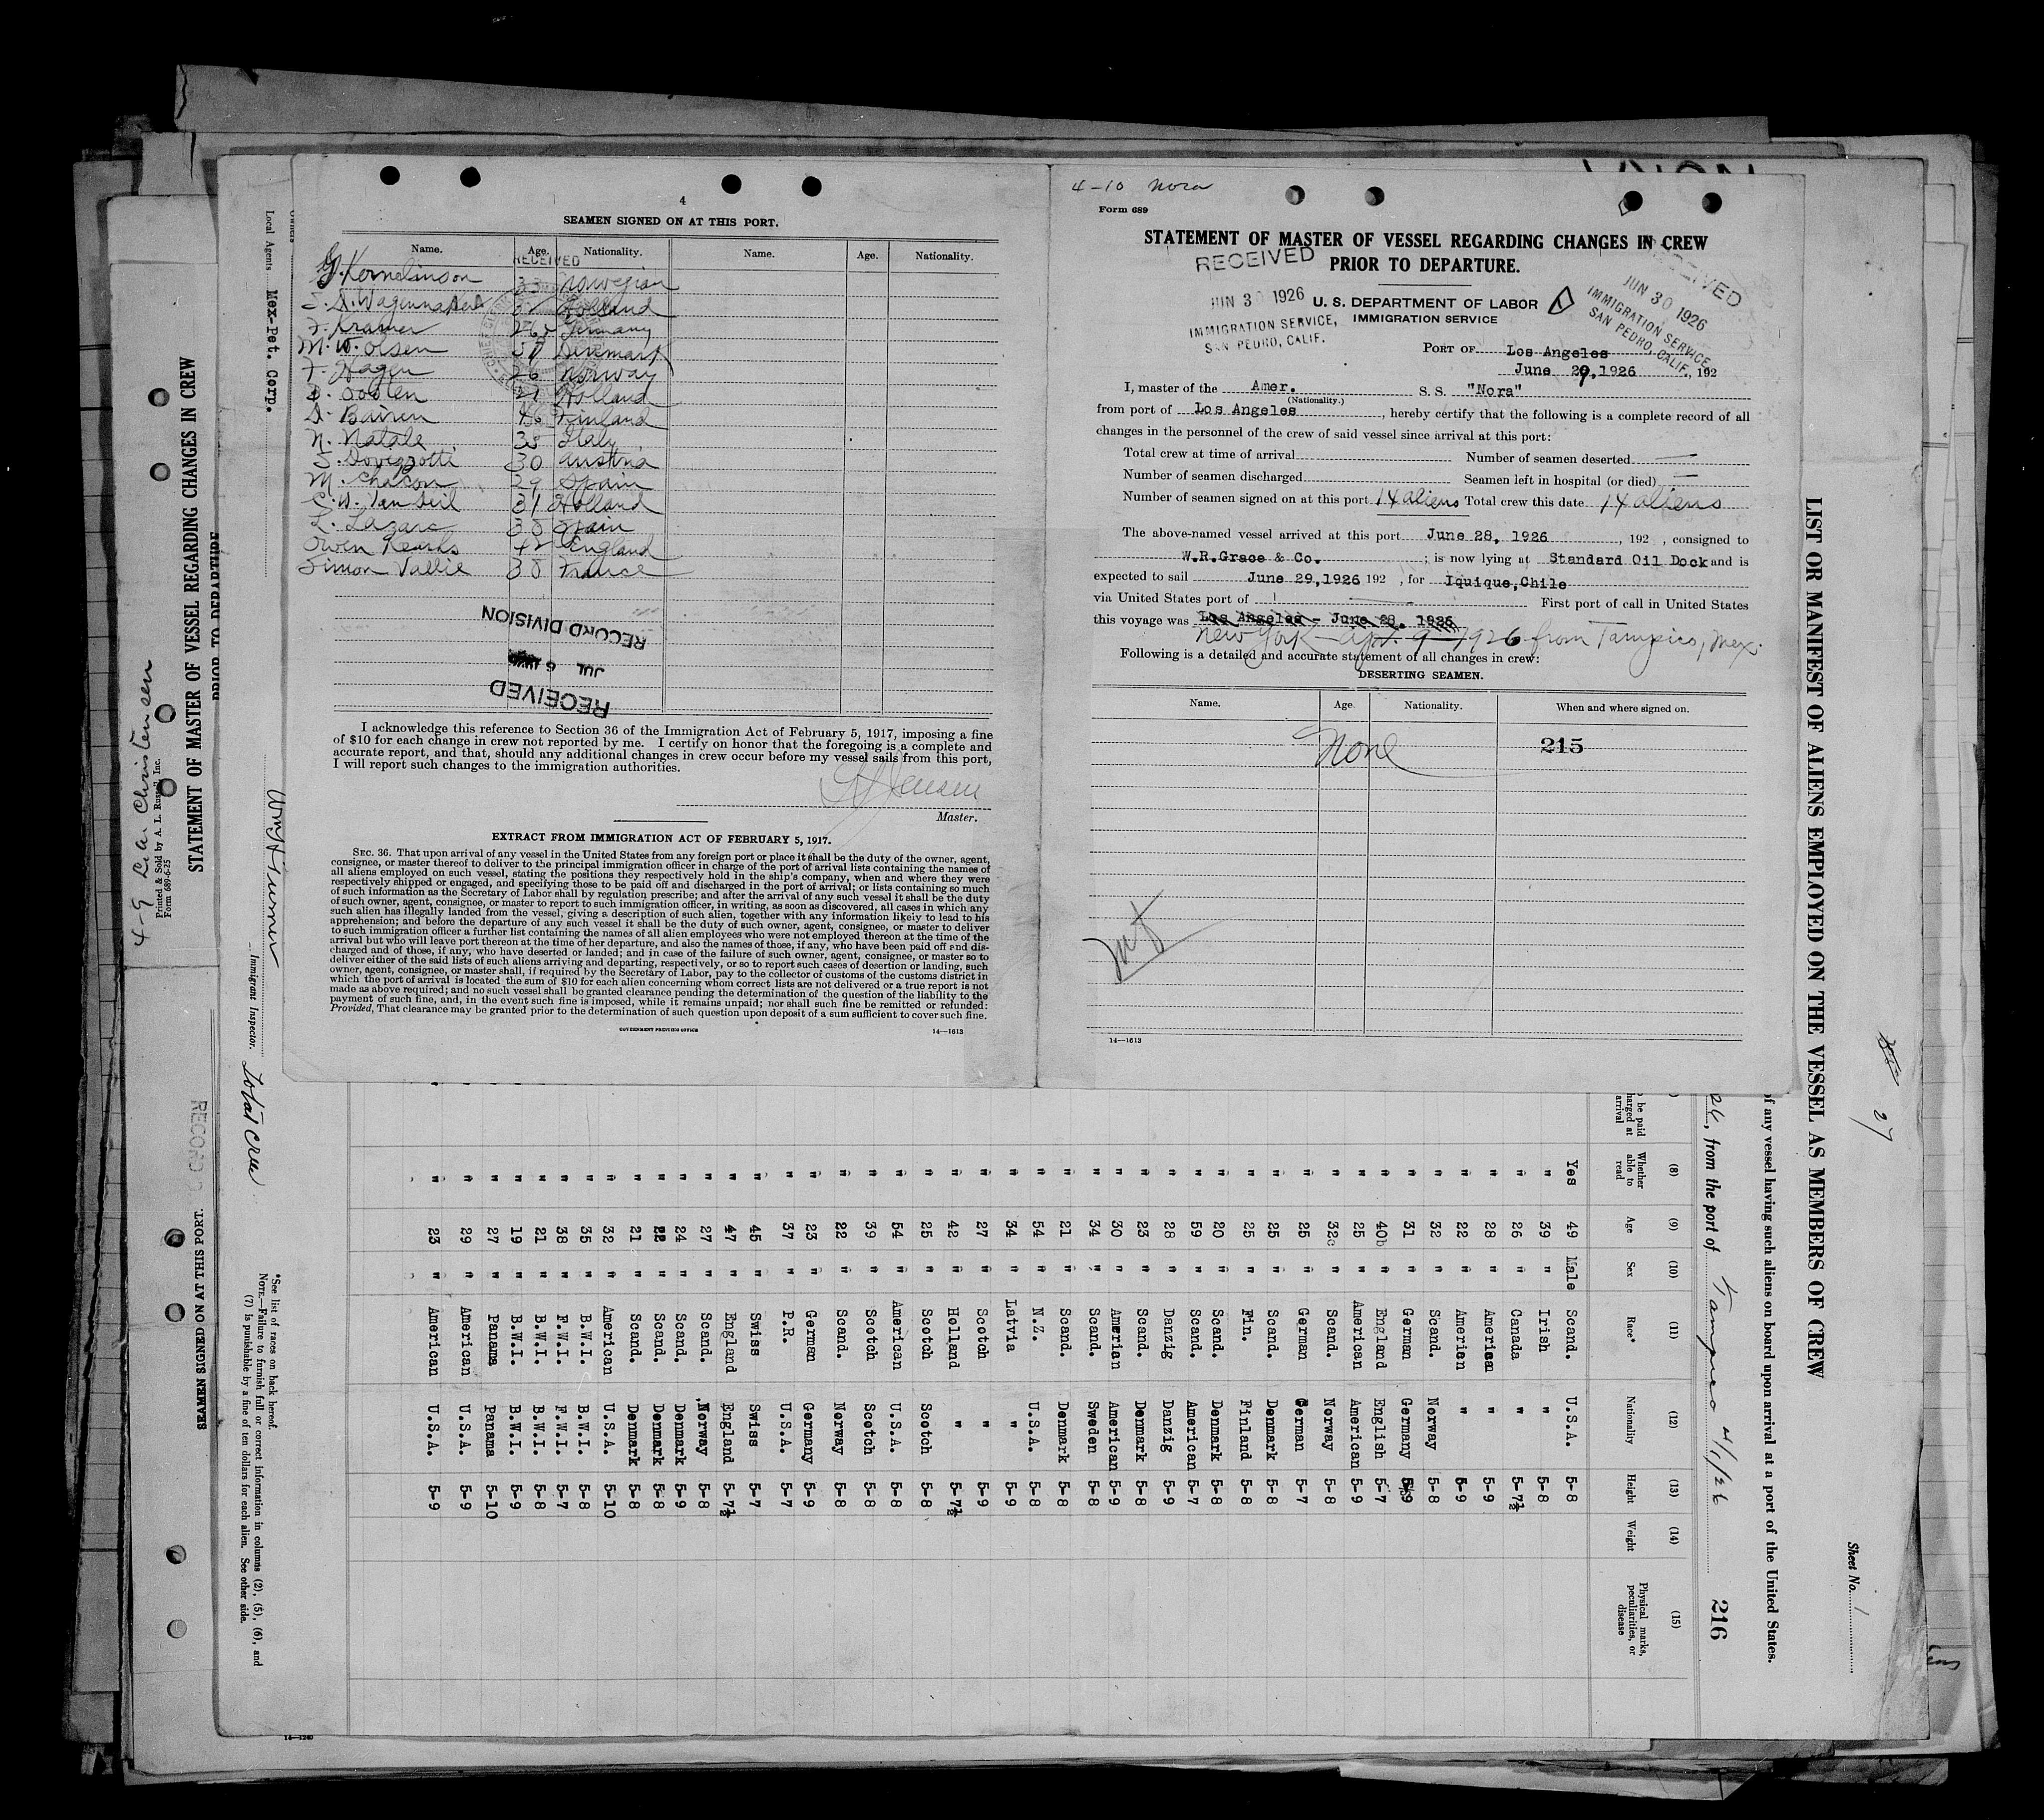 4
SEAMEN SIGNED ON AT THIS PORT.
Name. Age. Nationality. Name. Age. Nationality.
RECEIVED
G. Kornelinson 33 Norwegian
Holland
F. Kramer 26 Germany
M. W. Olsen Denmark
F. Hagen 26 Norway
27 Holland
46 Finland
N. Natale 38 Italy
30 Austria
M. Chacon 29 Spain
31 Holland
L. Lazaro 38 Spain
Owen 42 England
Simon Vallie 38 France
RECORD DIVISION
JUL 6
RECEIVED
I acknowledge this reference to Section 36 of the Immigration Act of February 5, 1917, imposing a fine
of $10 for each change in crew not reported by me. I certify on honor that the foregoing is a complete and
accurate report, and that, should any additional changes in crew occur before my vessel sails from this port,
I will report such changes to the immigration authorities.
Jensen
Master.
EXTRACT FROM IMMIGRATION ACT OF FEBRUARY 5, 1917.
SEC. 36. That upon arrival of any vessel in the United States from any foreign port or place it shall be the duty of the owner, agent,
consignee, or master thereof to deliver to the principal immigration officer in charge of the port of arrival lists containing the names of
all aliens employed on such vessel, stating the positions they respectively hold in the ship's company, when and where they were
respectively shipped or engaged, and specifying those to be paid off and discharged in the port of arrival; or lists containing so much
of such information as the Secretary of Labor shall by regulation prescribe; and after the arrival of any such vessel it shall be the duty
of such owner, agent, consignee, or master to report to such immigration officer, in writing, as soon as discovered, all cases in which any
such alien has illegally landed from the vessel, giving a description of such alien, together with any information likely to lead to his
apprehension; and before the departure of any such vessel it shall be the duty of such owner, agent, consignee, or master to deliver
to such immigration officer a further list containing the names of all alien employees who were not employed thereon at the time of the
arrival but who will leave port thereon at the time of her departure, and also the names of those, if any, who have been paid off and dis-
charged and of those, if any, who have deserted or landed; and in case of the failure of such owner, agent, consignee, or master so to
deliver either of the said lists of such aliens arriving and departing, respectively, or so to report such cases of desertion or landing, such
owner, agent, consignee, or master shall, if required by the Secretary of Labor, pay to the collector of customs of the customs district in
which the port of arrival is located the sum of $10 for each alien concerning whom correct lists are not delivered or a true report is not
made as above required; and no such vessel shall be granted clearance pending the determination of the question of the liability to the
payment of such fine, and, in the event such fine is imposed, while it remains unpaid; nor shall such fine be remitted or refunded:
Provided, That clearance may be granted prior to the determination of such question upon deposit of a sum sufficient to cover such fine.
GOVERNMENT PRINTING OFFICE 14—1613
4-10 Nora
Form 689
STATEMENT OF MASTER OF VESSEL REGARDING CHANGES IN CREW
PRIOR TO DEPARTURE.
RECEIVED
JUN 30 1926
IMMIGRATION SERVICE,
SAN PEDRO, CALIF.
U. S. DEPARTMENT OF LABOR
IMMIGRATION SERVICE
RECEIVED
JUN 30 1926
IMMIGRATION SERVICE
SAN PEDRO, CALIF.
PORT OF Los Angeles
June 29,1926, 192
I, master of the Amer. S. S. "Nora"
(Nationality.)
from port of Los Angeles, hereby certify that the following is a complete record of all
changes in the personnel of the crew of said vessel since arrival at this port:
Total crew at time of arrival Number of seamen deserted —
Number of seamen discharged Seamen left in hospital (or died) —
Number of seamen signed on at this port 14 aliens Total crew this date 14 aliens
The above-named vessel arrived at this port June 28, 1926, 192 , consigned to
W.R.Grace & Co. ; is now lying at Standard Oil Dock and is
expected to sail June 29,1926 192 , for Iquique,Chile
via United States port of — First port of call in United States
this voyage was Los Angeles - June 28, 1926
New York - Apr. 9 - 1926 from Tampico, Mex.
Following is a detailed and accurate statement of all changes in crew:
DESERTING SEAMEN.
Name. Age. Nationality. When and where signed on.
None 215
14—1613
LIST OR MANIFEST OF ALIENS EMPLOYED ON THE VESSEL AS MEMBERS OF CREW
of any vessel having such aliens on board upon arrival at a port of the United States.
26, from the port of Tampico 4/1/26 216
Sheet No. 1
27
(8) (9) (10) (11) (12) (13) (14) (15)
Whether able to read Age Sex Race* Nationality Height Weight Physical marks, peculiarities, or disease
Yes 49 Male Scand. U.S.A. 5-8
" 39 " Irish " 5-8
" 26 " Canada " 5-7½
" 28 " American " 5-9
" 22 " Amerian " 5-9
" 32 " Scand. Norway 5-8
" 31 " German Germany 5-9
" 40b " England English 5-7
" 25 " American American 5-9
" 32c " Scand. Norway 5-8
" 25 " German German 5-7
" 25 " Scand. Denmark 5-8
" 25 " Fin. Finland 5-8
" 20 " Scand. Denmark 5-8
" 59 " Scand. American 5-7
" 28 " Danzig Danzig 5-9
" 23 " Scand. Denmark 5-8
" 30 " Amerian American 5-9
" 34 " Scand. Sweden 5-8
" 21 " Scand. Denmark 5-8
" 54 " N.Z. U.S.A. 5-8
" 34 " Latvia " 5-9
" 27 " Scotch " 5-9
" 42 " Holland " 5-7½
" 25 " Scotch Scotch 5-8
" 54 " American U.S.A. 5-8
" 39 " Scotch Scotch 5-8
" 22 " Scand. Norway 5-8
" 23 " German Germany 5-9
" 37 " P.R. U.S.A. 5-7
" 45 " Swiss Swiss 5-7
" 47 " England England 5-7½
" 27 " Scand. Norway 5-8
" 24 " Scand. Denmark 5-9
" 22 " Scand. Denmark 5-8
" 21 " Scand. Denmark 5-8
" 32 " American U.S.A. 5-10
" 35 " B.W.I. B.W.I. 5-8
" 38 " F.W.I. F.W.I. 5-7
" 21 " B.W.I. B.W.I. 5-8
" 19 " B.W.I. B.W.I. 5-9
" 27 " Panama Panama 5-10
" 29 " American U.S.A. 5-9
" 23 " American U.S.A. 5-9
*See list of races on back hereof.
NOTE.—Failure to furnish full or correct information in columns (2), (5), (6), and
(7) is punishable by a fine of ten dollars for each alien. See other side.
Owners
Local Agents Mex-Pet. Corp.
Immigrant Inspector.
Total Crew
14—1240
STATEMENT OF MASTER OF VESSEL REGARDING CHANGES IN CREW
PRIOR TO DEPARTURE
4-9 Christensen
Printed & Sold by A. L. Russell, Inc.
Form 689-6-25
RECORD D
SEAMEN SIGNED ON AT THIS PORT.